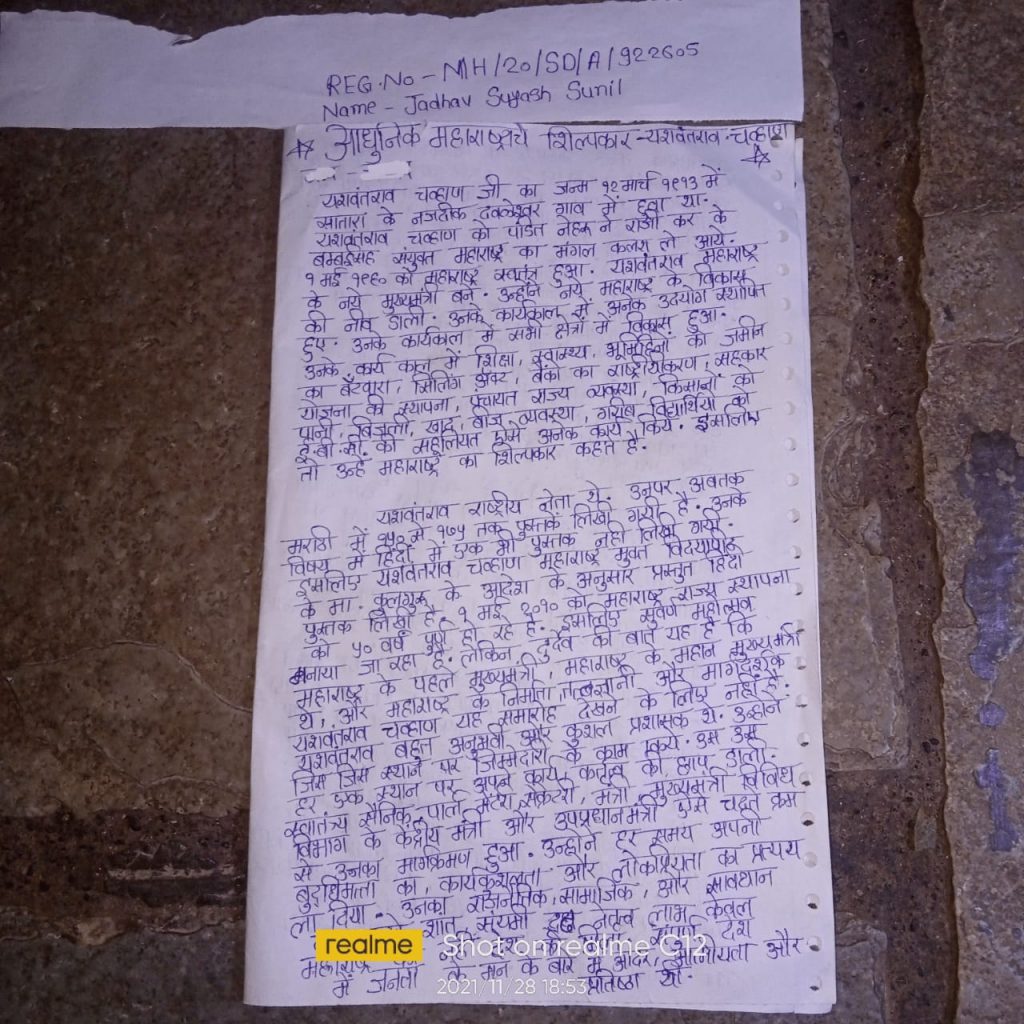 REG.No - MH/20/SD/A/922605
Name - Jadhav Suyash Sunil
आधुनिक महाराष्ट्राचे शिल्पकार - यशवंतराव - चव्हाण
यशवंतराव चव्हाण जी का जन्म १२ मार्च १९१३ में
सातारा के नजदीक देवळेश्वर गाव में हुवा था.
यशवंतराव चव्हाण को पंडित नेहरू ने राजी कर के
बम्बईसह संयुक्त महाराष्ट्र का मंगल कलश ले आये.
१ मई १९६० को महाराष्ट्र स्वतंत्र हुआ. यशवंतराव महाराष्ट्र
के नये मुख्यमंत्री बने. उन्होंने नये महाराष्ट्र के विकास
की नीव डाली. उनके कार्यकाल में अनेक उदयोग स्थापित
हुए. उनके कार्यकाल में सभी क्षेत्रों में विकास हुआ.
उनके कार्य काल में शिक्षा, स्वास्थ्य, भूमिहिनों को जमीन
का बँटवारा, सिलिंग अॅक्ट, बैंकों का राष्ट्रीयकरण, सहकार
योजना की स्थापना, पंचायत राज्य व्यवस्था, किसानों को
पानी, बिजली, खाद, बीज व्यवस्था, गरीब विद्यार्थियों को
इ.बी.सी. की सहूलियत ऐसे अनेक कार्य किये. इसलिए
तो उन्हें महाराष्ट्र का शिल्पकार कहते है.
यशवंतराव राष्ट्रीय नेता थे. उनपर अबतक
मराठी में १५० से १७५ तक पुस्तकें लिखी गयी है. उनके
विषय में हिंदी में एक भी पुस्तक नहीं लिखी गयी.
इसलिए यशवंतराव चव्हाण महाराष्ट्र मुक्त विदयापीठ
के मा. कुलगुरू के आदेश के अनुसार प्रस्तुत हिंदी
पुस्तक लिखी है. १ मई २०१० को महाराष्ट्र राज्य स्थापना
को ५० वर्ष पुर्ण हो रहे है. इसलिए सुवर्ण महोत्सव
मनाया जा रहा है. लेकिन दुर्दैव की बात यह है कि
महाराष्ट्र के पहले मुख्यमंत्री, महाराष्ट्र के महान मुख्यमंत्री
थे, और महाराष्ट्र के निर्माता तत्वज्ञानी और मार्गदर्शक
यशवंतराव चव्हाण यह समारोह देखने के लिए नहीं है.
यशवंतराव बहुत अनुभवी और कुशल प्रशासक थे. उन्होंने
जिस जिस स्थान पर जिम्मेदारी के काम किये. उस उस
हर एक स्थान पर अपने कार्य कर्तृत्व की छाप डाली.
स्वातंत्र्य सैनिक, पार्ला मेंटरी सेक्रेटरी, मंत्री, मुख्यमंत्री विविध
विभाग के केंद्रीय मंत्री और उपप्रधानमंत्री ऐसे चढते क्रम
से उनका मार्गक्रमण हुआ. उन्होंने हर समय अपनी
बुद्धिमत्ता का, कार्यकुशलता और लोकप्रियता का प्रत्यय
ला दिया. उनका राजनैतिक, सामाजिक, और सावधान
शांत संयमी नेतृत्व लाभ केवल
महाराष्ट्र देश
में जनता के मन के बारे में आदर, आत्मीयता और
प्रतिष्ठा थी.
realme Shot on realme C12
2021/11/28 18:53